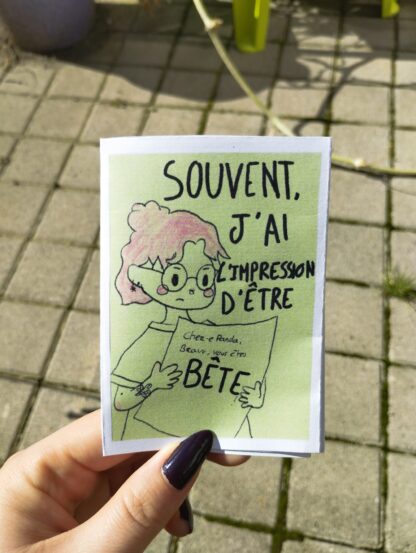 SOUVENT,
J'AI
L'IMPRESSION
D'ÊTRE
Cher·e Panda,
Bravo, vous êtes
BÊTE